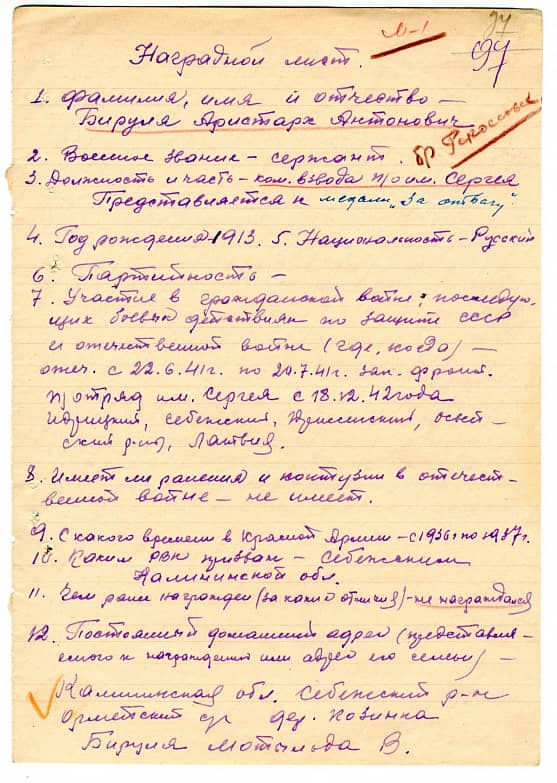 97
М-1
97
Наградной лист.
1. Фамилия, имя и отчество —
Бируля Аристарх Антонович
бр
2. Военное звание – сержант.
3. Должность и часть – ком. взвода п/о им. Сергея
Представляется к медали „За отвагу"
4. Год рождения 1913. 5. Национальность – Русский
6. Партийность –
7. Участие в гражданской войне, последую-
щих боевых действиях по защите СССР
и отечественной войне (где, когда) –
отеч. с 22.6.41г. по 20.7.41г. зап. фронт.
п/отряд им. Сергея с 18.12.42 года
Идрицкий, Себежский, Дриссенский, освей-
ский р-ны, Латвия.
8. Имеет ли ранения и контузии в отечест-
венной войне – не имеет.
9. С какого времени в Красной Армии – с 1936г по 1937г.
10. Каким РВК призван – Себежским
Калининской обл.
11. Чем ранее награжден (за какие отличия) – не награждался
12. Постоянный домашний адрес (представля-
емого к награждению или адрес его семьи) –
Калининская обл. Себежский р-н
с/с дер. Козинка
Бируля Мотильда В.